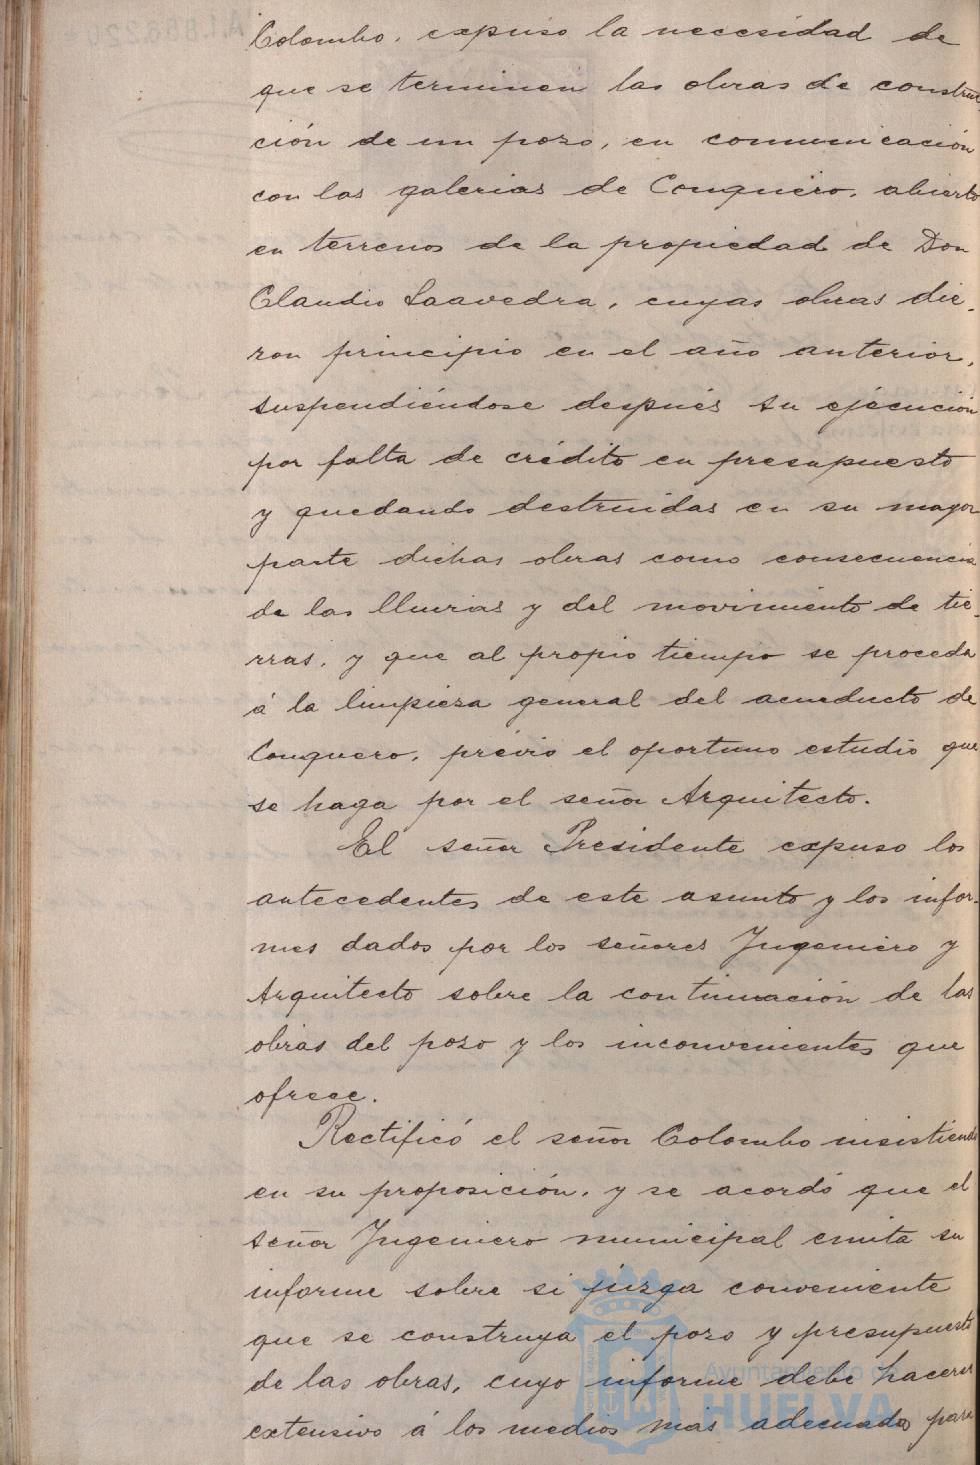 Colombo, expuso la necesidad de
que se terminen las obras de construc
ción de un pozo, en comunicación
con las galerias de Conquero, abierto
en terrenos de la propiedad de Don
Claudio Saavedra, cuyas obras die-
ron principio en el año anterior,
suspendiéndose después su ejecución
por falta de crédito en presupuesto
y quedando destruidas en su mayor
parte dichas obras como consecuencia
de las lluvias y del movimiento de tie-
rras, y que al propio tiempo se proceda
á la limpieza general del acueducto de
Conquero, prévio el oportuno estudio que
se haga por el señor Arquitecto.
El señor Presidente expuso los
antecedentes de este asunto y los infor-
mes dados por los señores Ingeniero y
Arquitecto sobre la continuación de las
obras del pozo y los inconvenientes que
ofrece.
Rectificó el señor Colombo insistiendo
en su proposición, y se acordó que el
señor Ingeniero municipal emita su
informe sobre si juzga conveniente
que se construya el pozo y presupuesto
de las obras, cuyo informe debe hacerse
extensivo á los medios más adecuados para
Ayuntamiento de
HUELVA